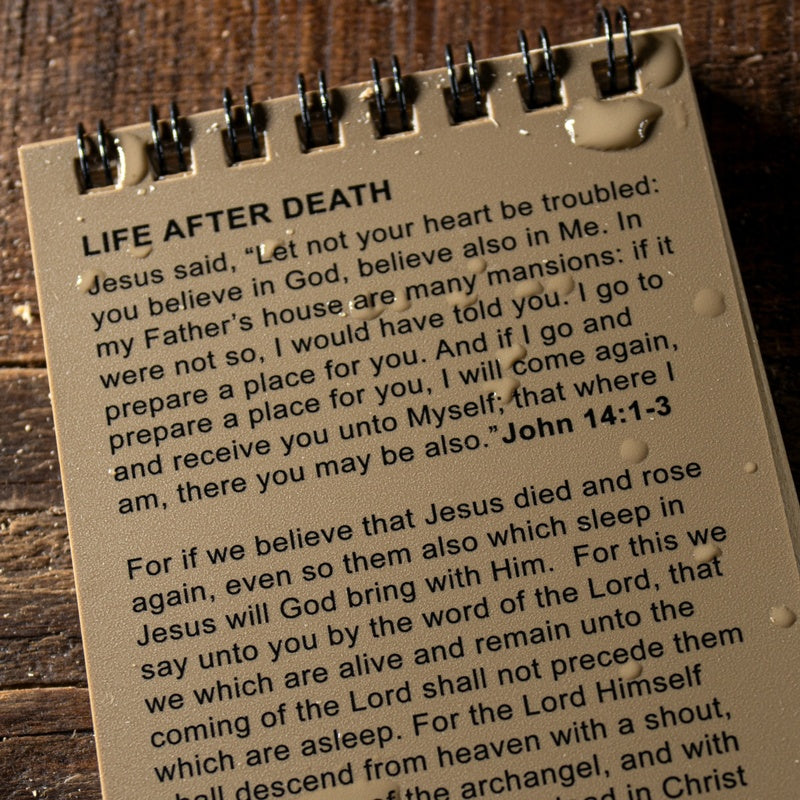 LIFE AFTER DEATH
Jesus said, “Let not your heart be troubled:
you believe in God, believe also in Me. In
my Father’s house are many mansions: if it
were not so, I would have told you. I go to
prepare a place for you. And if I go and
prepare a place for you, I will come again,
and receive you unto Myself; that where I
am, there you may be also.” John 14:1-3
For if we believe that Jesus died and rose
again, even so them also which sleep in
Jesus will God bring with Him. For this we
say unto you by the word of the Lord, that
we which are alive and remain unto the
coming of the Lord shall not precede them
which are asleep. For the Lord Himself
shall descend from heaven with a shout,
of the archangel, and with
in Christ